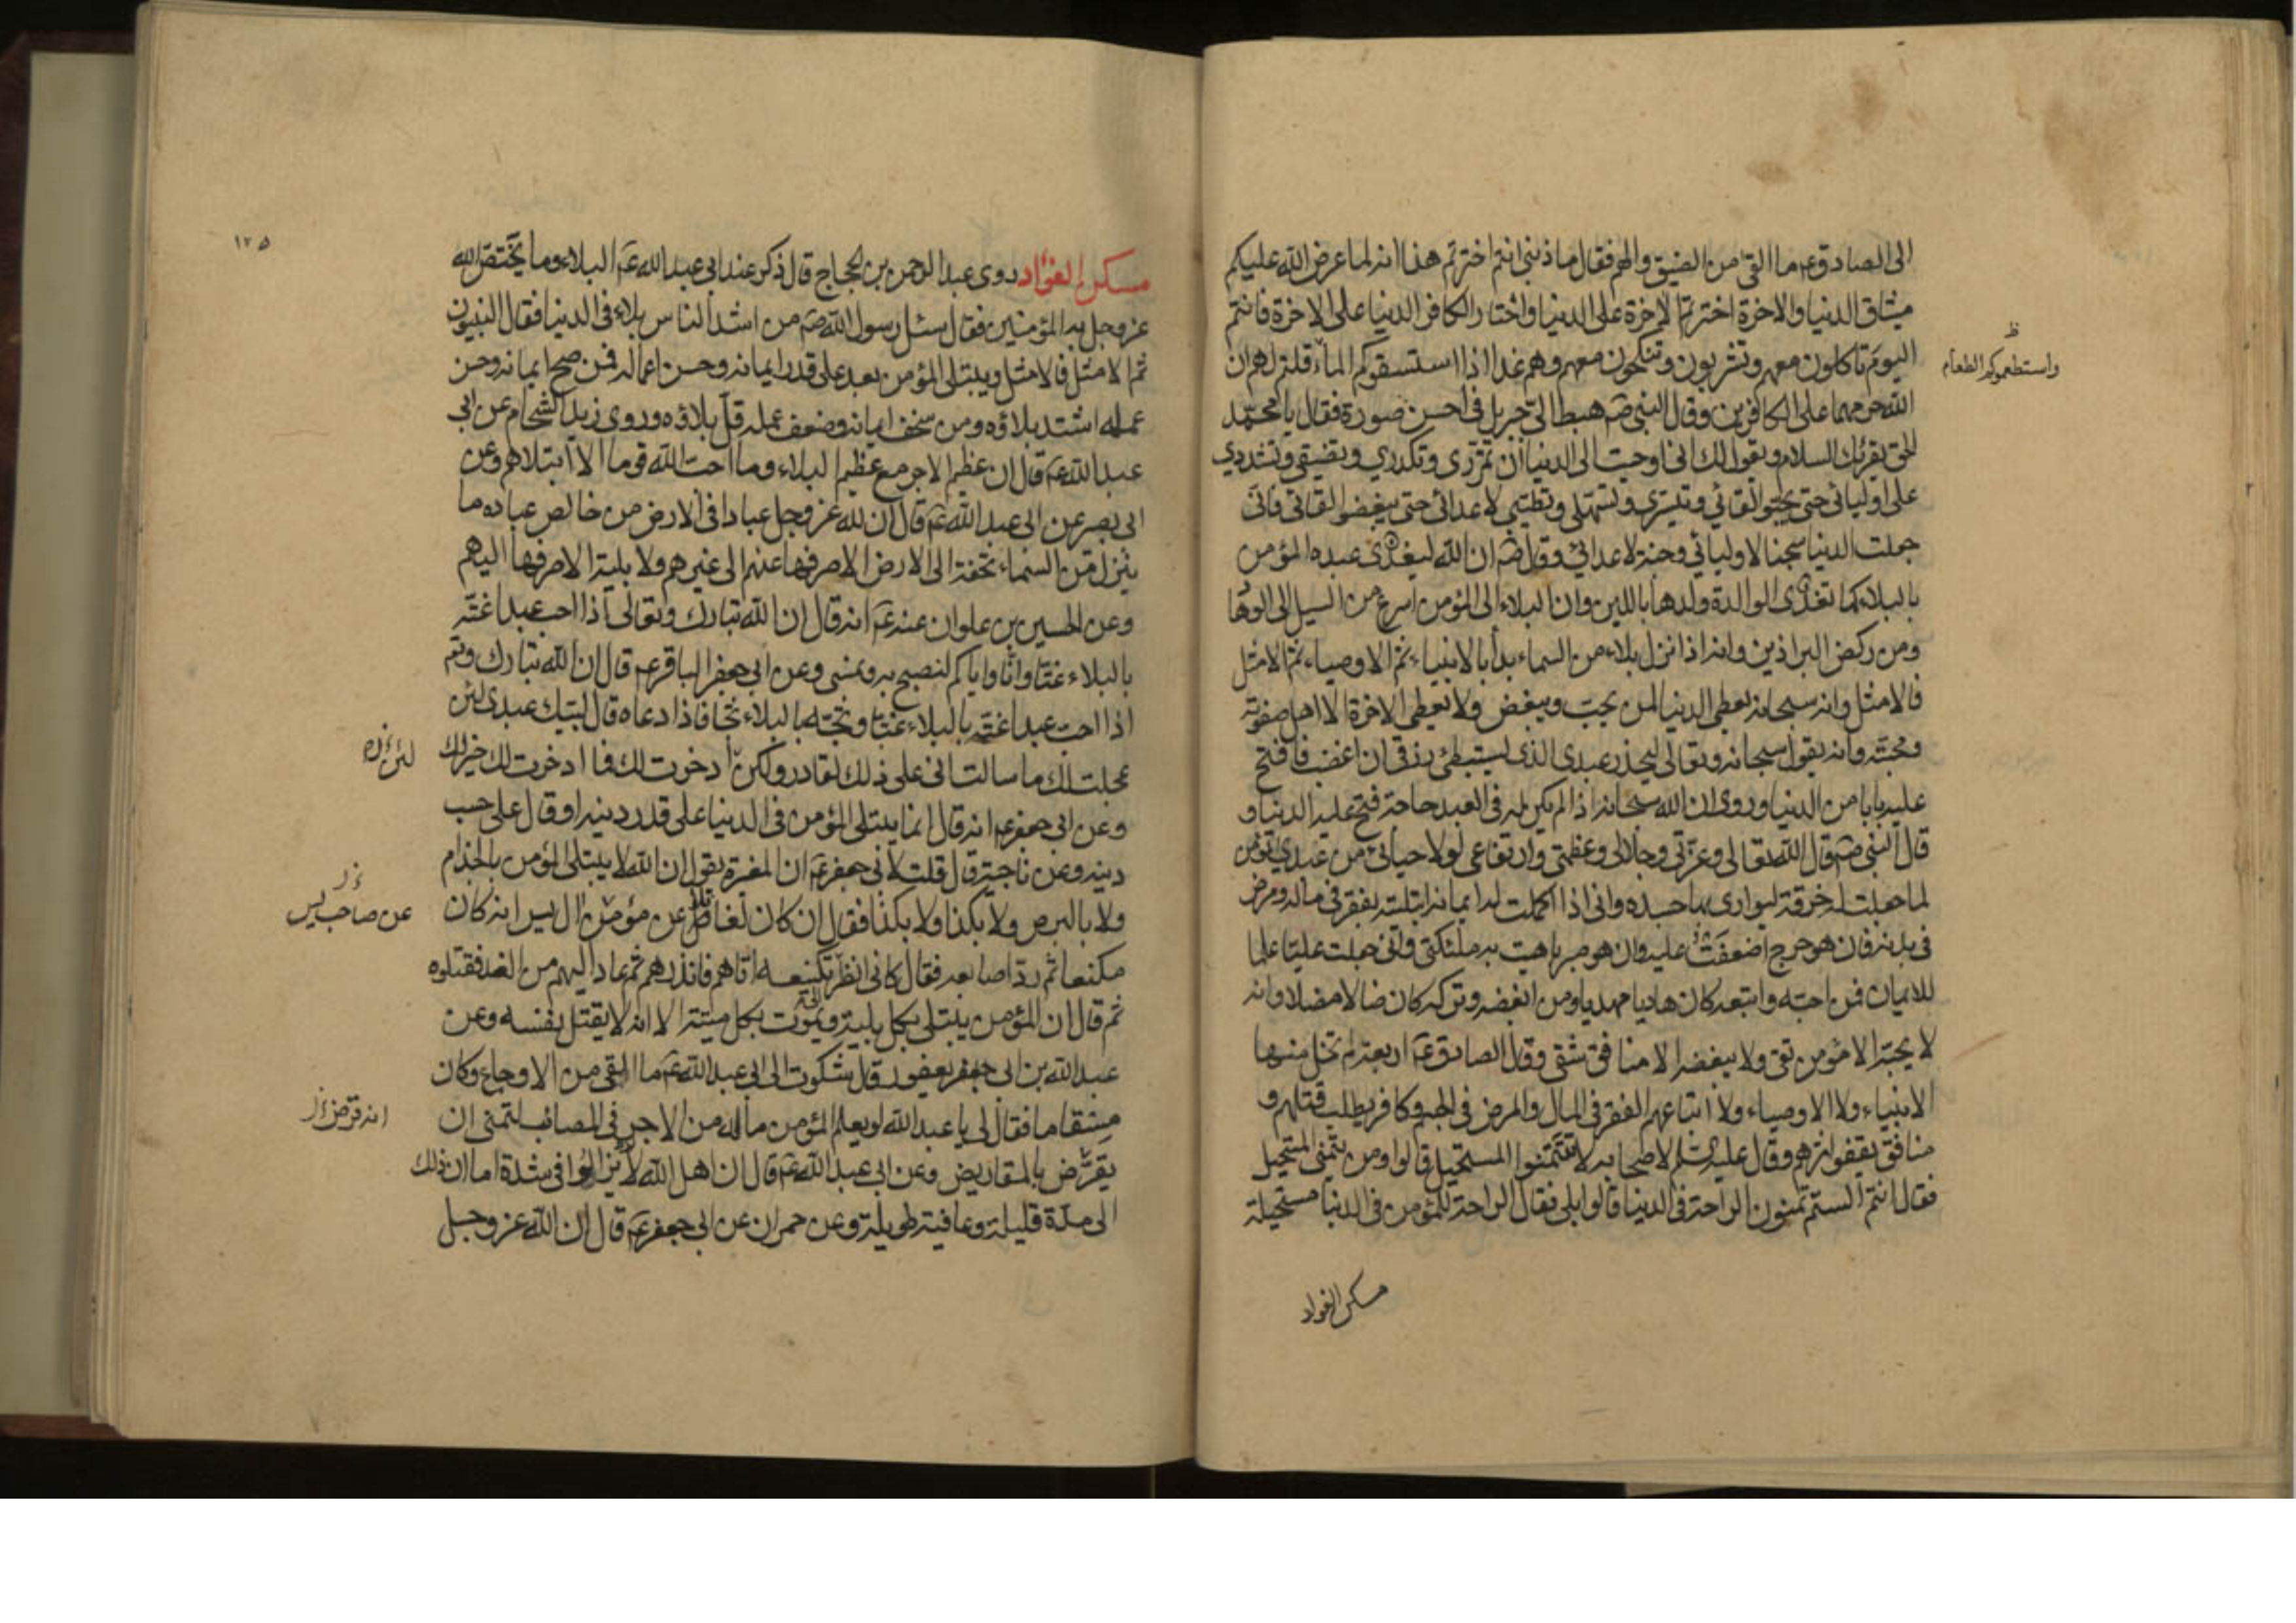 الى الصادق عم ما القى من الضيق والهم فقال ما ذنبى انتم اخترتم هذا انه لما عرض الله عليكم
ميثاق الدنيا والاخرة اخترتم الاخرة على الدنيا واختار الكافر الدنيا على الاخرة فانتم
اليوم تاكلون معهم وتشربون وتنكحون معهم وهم غدا اذا استسقوكم الماء قلتم لهم ان
ظ
واستطعموكم الطعام
الله حرمهما على الكافرين وقال النبى صم هبط الىّ جبريل فى احسن صورة فقال يا محمد
الحق يقرئك السلام ويقول لك انى اوحيت الى الدنيا أن تمررى وتكدرى وتضيقى وتشددى
على اوليائى حتى يحبوا لقائى وتيسرى وتسهلى وتطيبى لاعدائى حتى يبغضوا لقائى فانى
جعلت الدنيا سجنا لاوليائى وجنة لاعدائى وقال صم ان الله ليغذى عبده المؤمن
بالبلاء كما تغذى الوالدة ولدها باللبن وان البلاء الى المؤمن اسرع من السيل الى الوهاد
ومن ركض البراذين وانه اذا نزل بلاء من السماء بدأ بالانبياء ثم الاوصياء ثم الامثل
فالامثل وانه سبحانه يعطى الدنيا لمن يحب ويبغض ولا يعطى الاخرة الا اهل صفوته
ومحبته وانه يقول سبحانه وتعالى ليحذر عبدى الذى يستبطئ رزقى ان اغضب فافتح
عليه بابا من الدنيا وروى ان الله سبحانه اذا لم يكن له فى العبد حاجة فتح عليه الدنيا و
قال النبى صم قال الله تعالى وعزتى وجلالى وعظمتى وارتفاعى لولا حيائى من عبدى المؤمن
لما جعلت له خرقة ليوارى بها جسده وانى اذا اكملت له ايمانه ابتليته بفقر فى ماله ومرض
فى بدنه فان هو حرج اضعفت عليه وان هو صبر باهيت به ملئكتى وانى جعلت عليا علما
للايمان فمن احبه واتبعه كان هاديا مهديا ومن ابغضه وتركه كان ضالا مضلا وانه
لا يحبه الا مؤمن تقى ولا يبغضه الا منافق شقى وقال الصادق عم اربعة لم تخل منها
الانبياء ولا الاوصياء ولا اتباعهم الفقر فى المال والمرض فى الجسم وكافر يطلب قتلهم و
منافق يقفوا اثرهم وقال عليه السلم لاصحابه لا تتمنوا المستحيل قالوا ومن يتمنى المستحيل
فقال انتم ألستم تمنون الراحة فى الدنيا قالوا بلى فقال الراحة للمؤمن فى الدنيا مستحيلة
مسكن الفواد
١٢٥
مسكن الفؤاد روى عبد الرحمن بن الحجاج قال ذكر عند ابى عبد الله عم البلاء وما يختص الله
عز وجل به المؤمنين فقال سئل رسول الله صم من اشد الناس بلاء فى الدنيا فقال النبيون
ثم الامثل فالامثل ويبتلى المؤمن بعد على قدر ايمانه وحسن اعماله فمن صح ايمانه وحسن
عمله اشتد بلاؤه ومن سخف ايمانه وضعف عمله قل بلاؤه وروى زيد الشحام عن ابى
عبد الله عم قال ان عظيم الاجر مع عظيم البلاء وما احب الله قوما الا ابتلاهم وعن
ابى بصير عن ابى عبد الله عم قال ان لله عز وجل عبادا فى الارض من خالص عباده ما
ينزل من السماء تحفة الى الارض الا صرفها عنهم الى غيرهم ولا بلية الا صرفها اليهم
وعن الحسين بن علوان عنه عم انه قال ان الله تبارك وتعالى اذا احب عبدا غته
بالبلاء غتا وانا واياكم لنصبح به ونمسى وعن ابى جعفر الباقر عم قال ان الله تبارك وتعم
اذا احب عبدا غته بالبلاء غتا وثجه بالبلاء ثجا فاذا دعاه قال لبيك عبدى لئن
عجلت لك ما سالت انى على ذلك لقادر ولكن ادخرت لك فما ادخرت لك خير لك
وعن ابى جعفر عم انه قال انما يبتلى المؤمن فى الدنيا على قدر دينه او قال على حسب
دينه وعن ناجية قال قلت لابى جعفر عم ان المغيرة يقول ان الله لا يبتلى المؤمن بالجذام
ولا بالبرص ولا بكذا ولا بكذا فقال ان كان لغافلا عن مؤمن ال يس انه كان
عن صاحب يس
مكنعا ثم رد اصابعه فقال كانى انظر الى تكنيعه اتاهم فانذرهم ثم عاد اليهم من الغد فقتلوه
ثم قال ان المؤمن يبتلى بكل بلية ويموت بكل ميتة الا انه لا يقتل نفسه وعن
عبد الله بن ابى يعفور قال شكوت الى ابى عبد الله عم ما القى من الاوجاع وكان
مسقاما فقال لى يا عبد الله لو يعلم المؤمن ماله من الاجر فى المصائب لتمنى ان
انه قرض
يقرض بالمقاريض وعن ابى عبد الله عم قال ان اهل الله لا يزالوا فى شدة اما ان ذلك
الى مدة قليلة وعافية طويلة وعن حمران عن ابى جعفر عم قال ان الله عز وجل